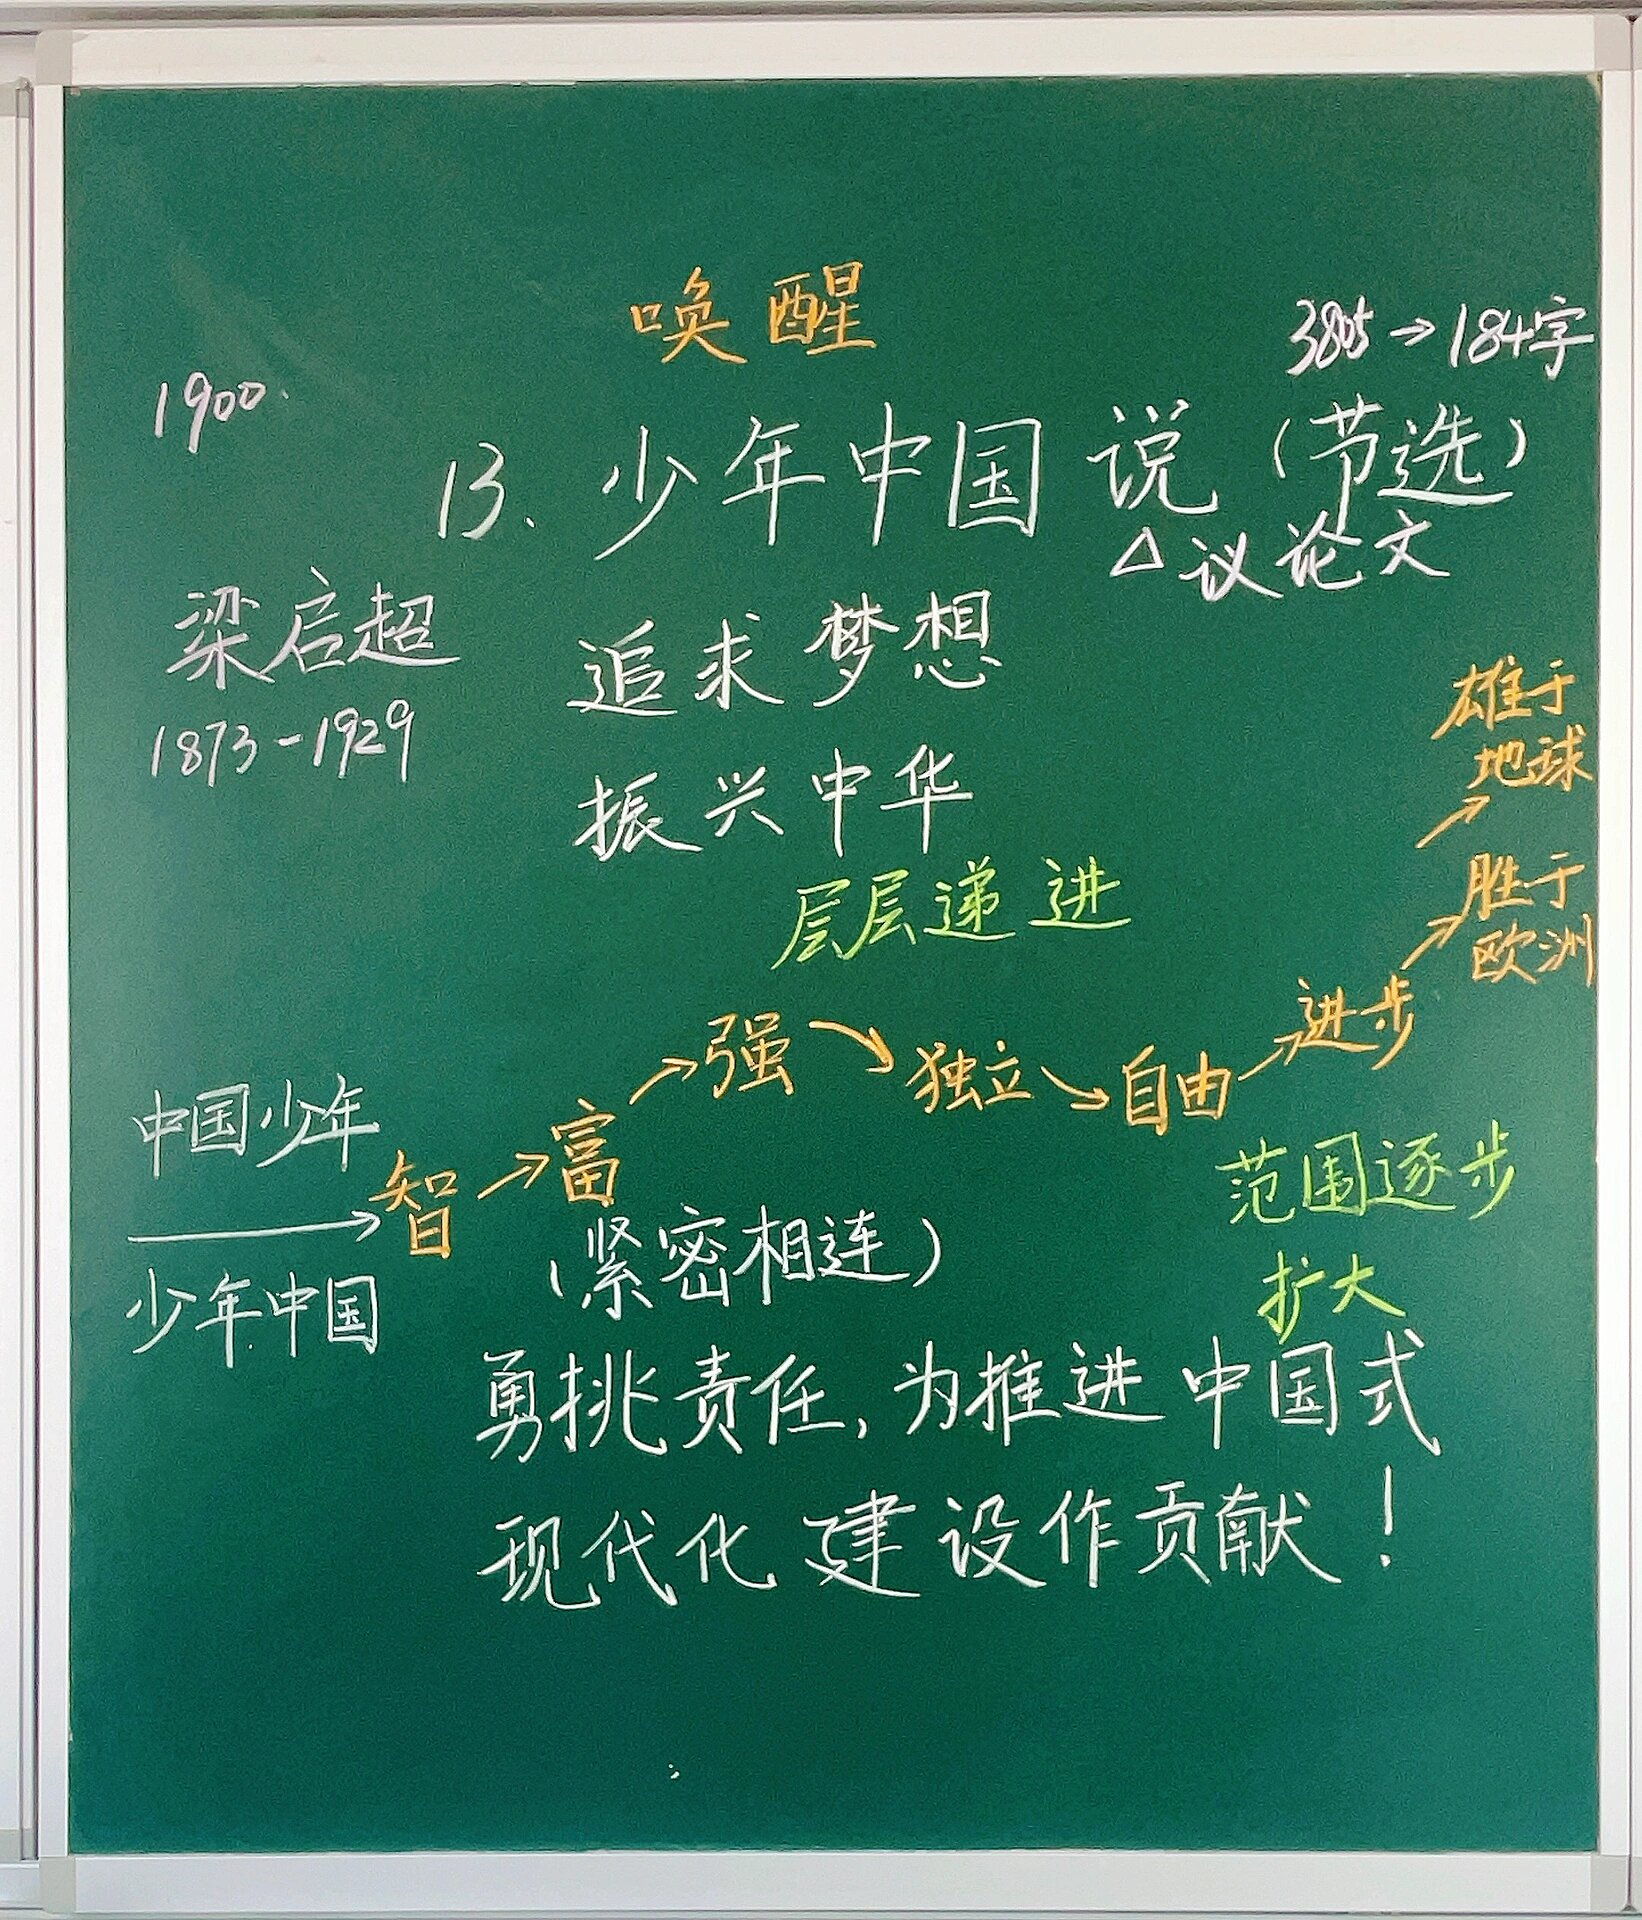 唤醒
3805→184字
1900.
13.少年中国说(节选)
△议论文
梁启超
1873-1929
追求梦想
振兴中华
层层递进
中国少年
少年中国
智→富→强→独立→自由→进步→胜于欧洲→雄于地球
(紧密相连)
范围逐步
扩大
勇挑责任,为推进中国式
现代化建设作贡献!